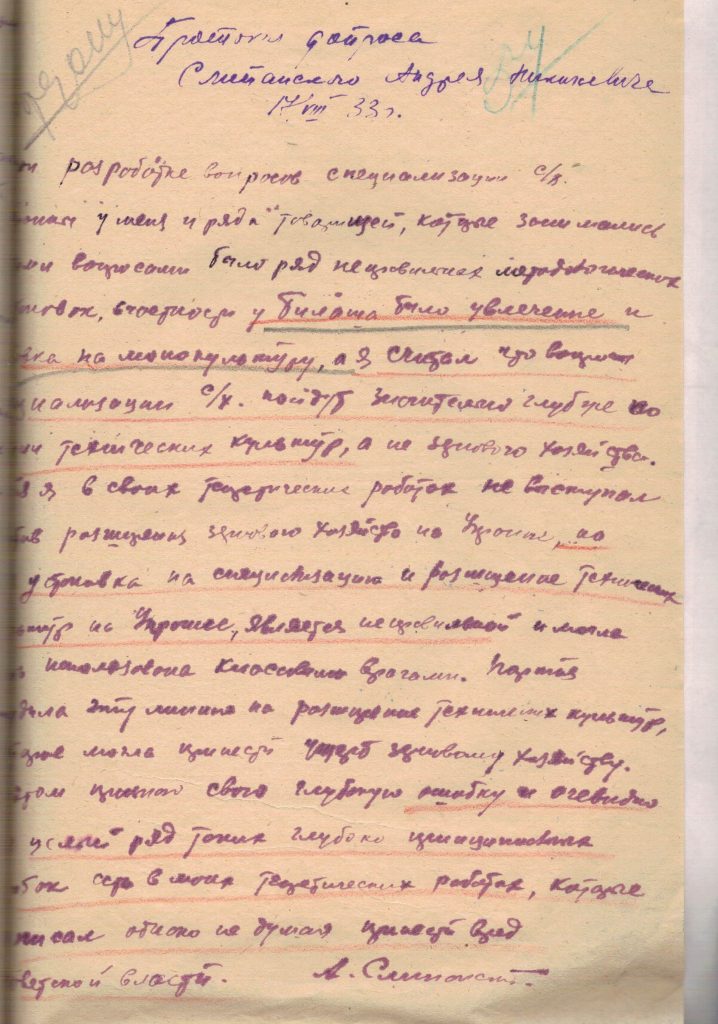 Протокол допроса
Слипанского Андрея Никит
17 VIII 33 г.
разроботке вопросов специализации с/х.
у меня и ряда товарищей, которые занимались
вопросами было ряд неправильных методологических
в частности у Билаша было увлечение и
на монокультуру, а я считал что вопросы
с/х. пойдут значительно глубже по
технических культур, а не зернового хозяйства.
я в своих теоретических роботах не выступал
розмещения зернового хозяйства на Украине, но
установка на специализацию и розмещение технических
на Украине, является неправильной и могла
использована классовыми врагами. Партия
эту линию на розмещение технических культур,
могла принести ущерб зерновому хозяйству.
признаю свою глубокую ошибку и очевидно
целый ряд таких глубоко принципиовых
есть в моих теоретических роботах, которые
однако не думая принести вред
власти. А. Слипанский.